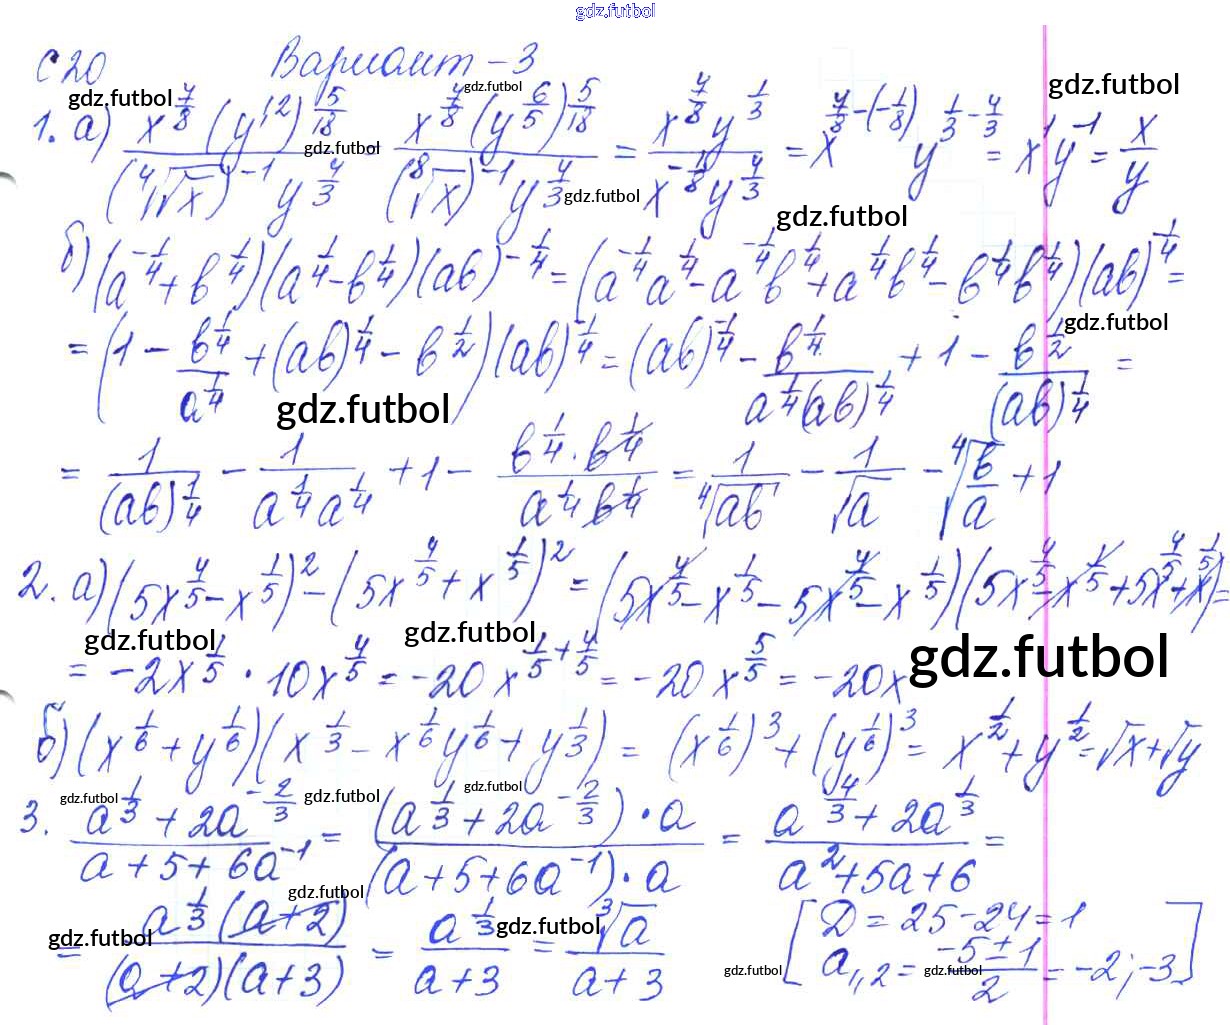 gdz.futbol
С20 Вариант - 3
gdz.futbol gdz.futbol gdz.futbol
1. а) x^{7/8} (y^{1,2})^{5/18} / ((⁴√√x)^{-1} y^{4/3}) = x^{7/8} (y^{6/5})^{5/18} / ((⁸√x)^{-1} y^{4/3}) = x^{7/8} y^{1/3} / (x^{-1/8} y^{4/3}) = x^{7/8-(-1/8)} y^{1/3-4/3} = x^1 y^{-1} = x/y
gdz.futbol gdz.futbol gdz.futbol
б) (a^{-1/4} + b^{1/4})(a^{1/4} - b^{1/4})(ab)^{-1/4} = (a^{-1/4} a^{1/4} - a^{-1/4} b^{1/4} + a^{1/4} b^{1/4} - b^{1/4} b^{1/4})(ab)^{-1/4} =
= (1 - b^{1/4}/a^{1/4} + (ab)^{1/4} - b^{1/2})(ab)^{-1/4} = (ab)^{-1/4} - b^{1/4}/(a^{1/4}(ab)^{1/4}) + 1 - b^{1/2}/(ab)^{1/4} =
gdz.futbol gdz.futbol
= 1/(ab)^{1/4} - 1/(a^{1/4} a^{1/4}) + 1 - b^{1/4} · b^{1/4}/(a^{1/4} b^{1/4}) = 1/⁴√ab - 1/√a - ⁴√(b/a) + 1
2. а) (5x^{4/5} - x^{1/5})^2 - (5x^{4/5} + x^{1/5})^2 = (5x^{4/5} - x^{1/5} - 5x^{4/5} - x^{1/5})(5x^{4/5} - x^{1/5} + 5x^{4/5} + x^{1/5}) =
gdz.futbol gdz.futbol gdz.futbol
= -2x^{1/5} · 10x^{4/5} = -20x^{1/5+4/5} = -20x^{5/5} = -20x
б) (x^{1/6} + y^{1/6})(x^{1/3} - x^{1/6} y^{1/6} + y^{1/3}) = (x^{1/6})^3 + (y^{1/6})^3 = x^{1/2} + y^{1/2} = √x + √y
gdz.futbol gdz.futbol gdz.futbol
3. (a^{1/3} + 2a^{-2/3})/(a + 5 + 6a^{-1}) = (a^{1/3} + 2a^{-2/3}) · a/((a + 5 + 6a^{-1}) · a) = (a^{4/3} + 2a^{1/3})/(a^2 + 5a + 6) =
gdz.futbol
= a^{1/3}(a+2)/((a+2)(a+3)) = a^{1/3}/(a+3) = ³√a/(a+3) [Д = 25 - 24 = 1
a_{1,2} = (-5 ± 1)/2 = -2; -3]
gdz.futbol gdz.futbol gdz.futbol gdz.futbol